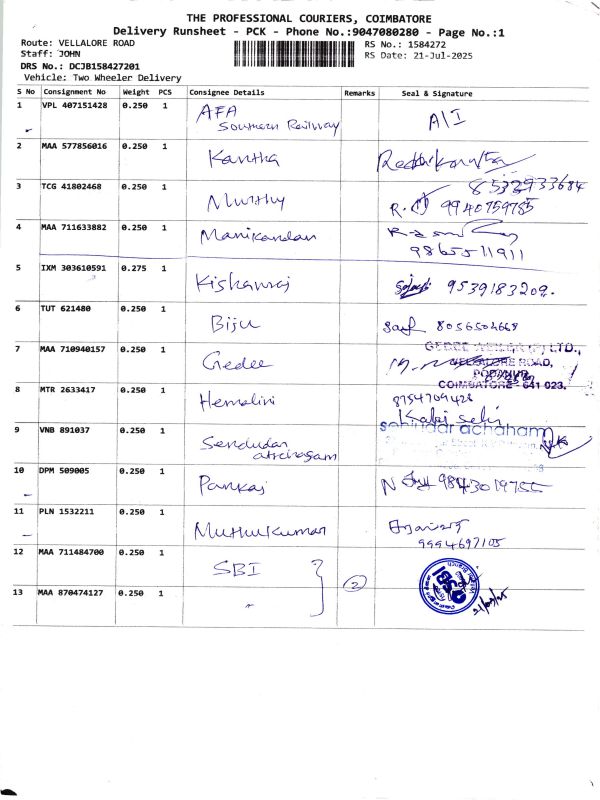 THE PROFESSIONAL COURIERS, COIMBATORE
Delivery Runsheet - PCK - Phone No.:9047080280 - Page No.:1
Route: VELLALORE ROAD
RS No.: 1584272
Staff: JOHN
RS Date: 21-Jul-2025
DRS No.: DCJB158427201
Vehicle: Two Wheeler Delivery
S No Consignment No Weight PCS Consignee Details Remarks Seal & Signature
1 VPL 407151428 0.250 1 AFA
Southern Railway
2 MAA 577856016 0.250 1 Kantha
8532933684
3 TCG 41802468 0.250 1 Murthy
9940759785
4 MAA 711633882 0.250 1 Manikandan
9865511911
5 IXM 303610591 0.275 1 9539183209.
6 TUT 621480 0.250 1 Biju 8056502668
7 MAA 710940157 0.250 1 Gedee
LTD.,
VELLALORE ROAD,
PODANUR,
COIMBATORE - 641 023.
8 MTR 2633417 0.250 1 Hemalini 8754709428
9 VNB 891037 0.250 1
10 DPM 509005 0.250 1 Pankaj 9843019755
11 PLN 1532211 0.250 1 Muthukumar
9994697105
12 MAA 711484700 0.250 1 SBI
2
SBI
13 MAA 870474127 0.250 1 "